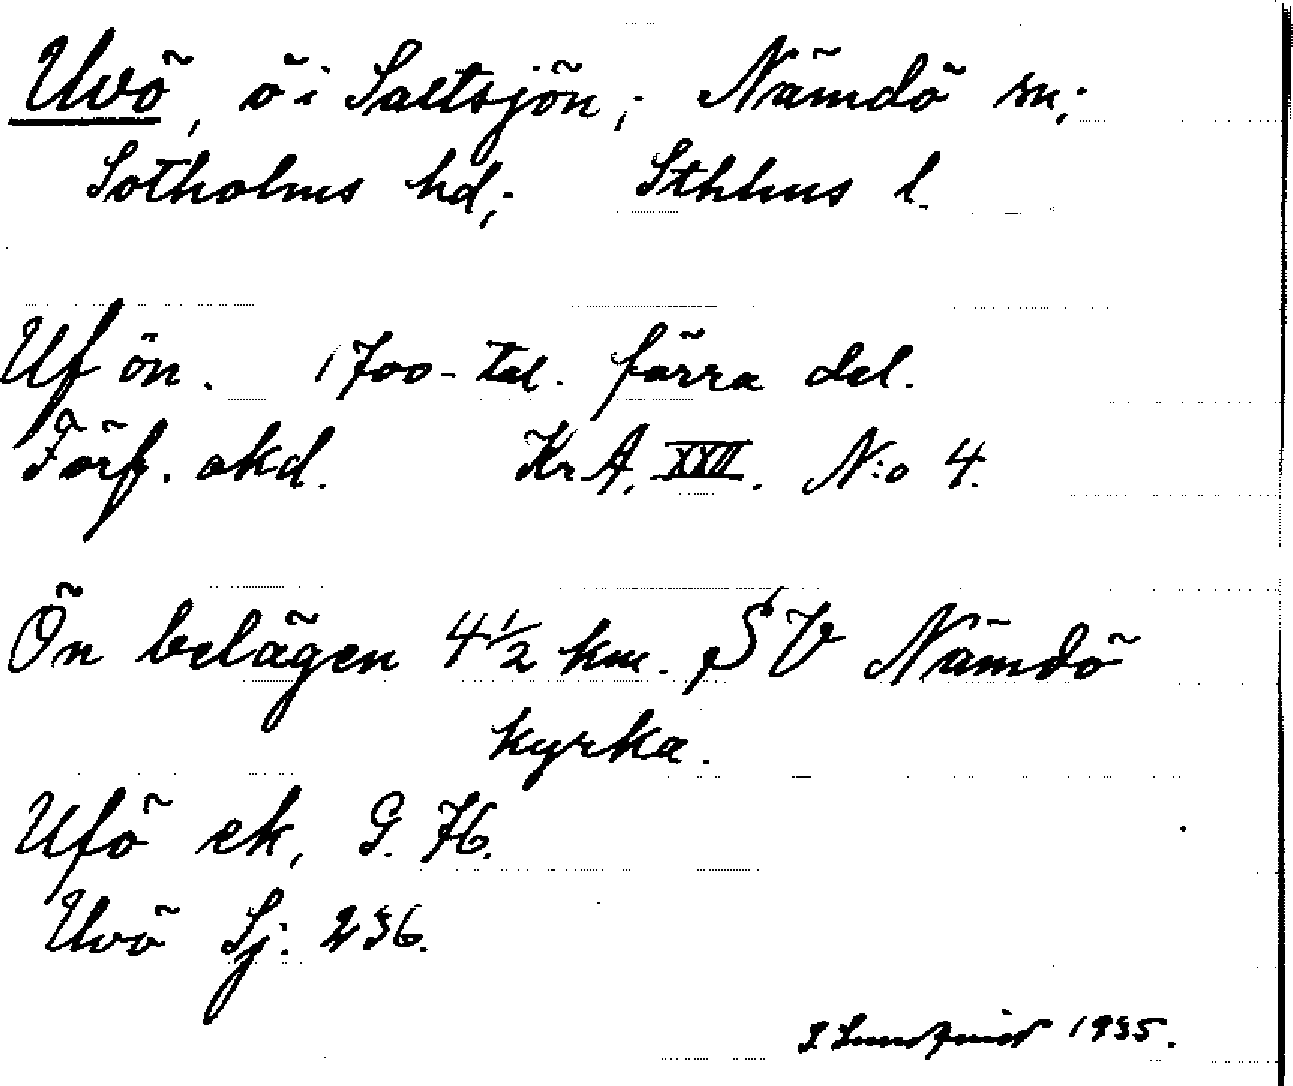 Uvö, ö i Saltsjön; Nämdö sn;
Sotholms hd; Sthlms l.
Uf ön. 1700-tal. förra del.
Förf. okd. Kr A. XXII. N:o 4.
Ön belägen 4 1/2 km. SV Nämdö
kyrka.
Ufö ek, G. 76.
Uvö Sj. 236.
Lundquist 1935.